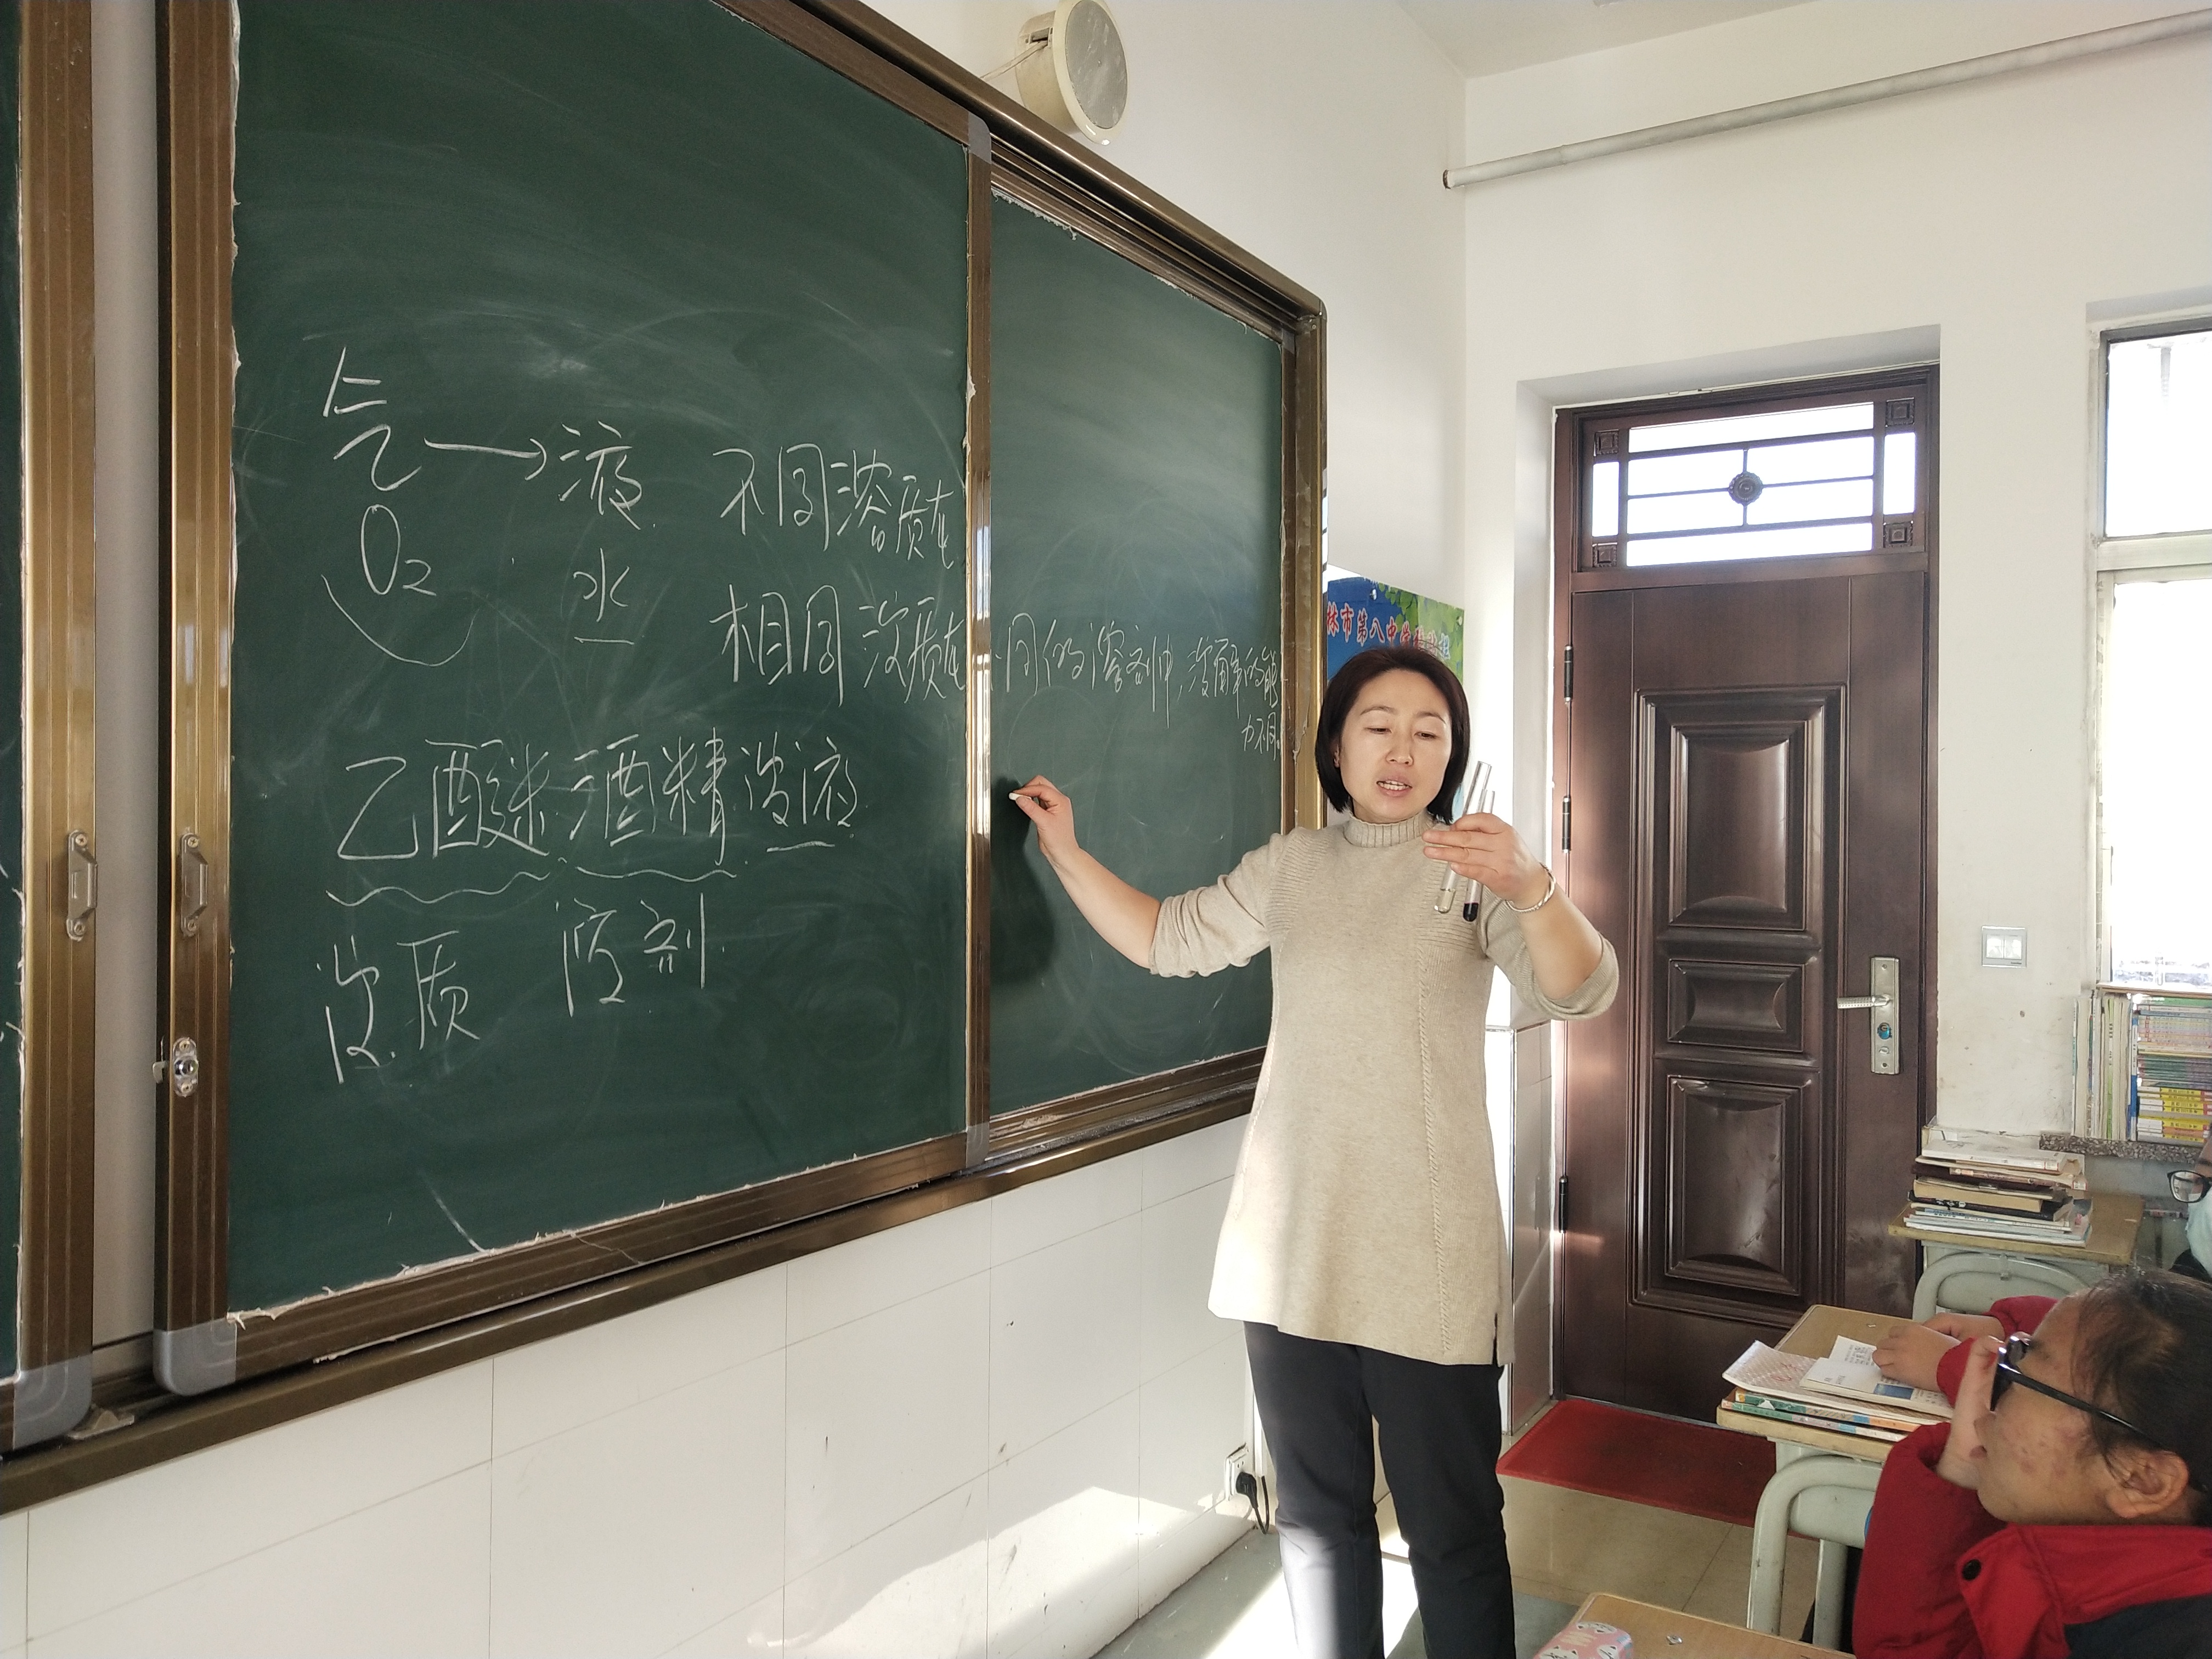 气 → 液
O₂ 水
不同溶质在
相同溶质在 同的溶剂中,溶解的能
力不同。
乙醚 酒精溶液
溶质 溶剂
林市第八中学